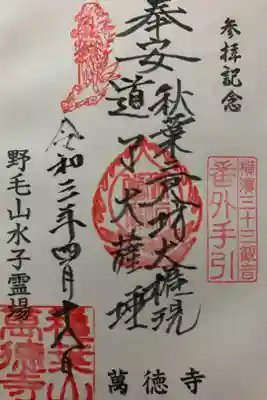 參拝記念
横濱三十三観音
番外手引
奉安
秋葉三尺坊大権現
道了大薩埵
令和三年四月十八日
野毛山水子霊場
萬徳寺
萬徳寺